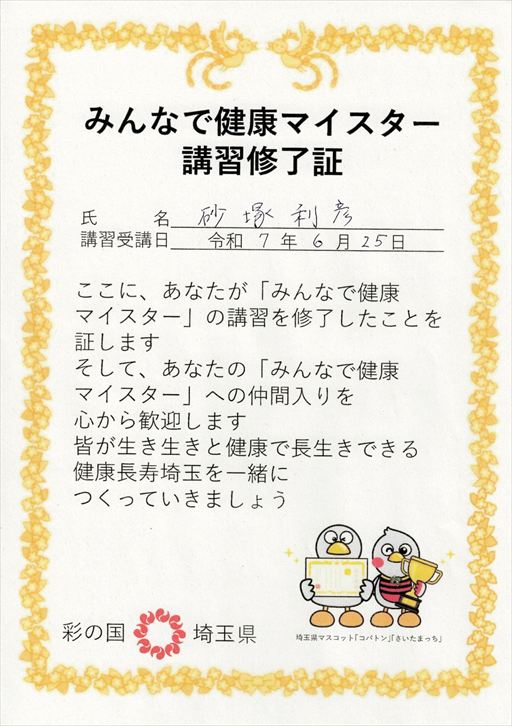 みんなで健康マイスター
講習修了証
氏　　　名　砂塚利彦
講習受講日　令和 7 年 6 月 25日
ここに、あなたが「みんなで健康
マイスター」の講習を修了したことを
証します
そして、あなたの「みんなで健康
マイスター」への仲間入りを
心から歓迎します
皆が生き生きと健康で長生きできる
健康長寿埼玉を一緒に
つくっていきましょう
彩の国　埼玉県
埼玉県マスコット「コバトン」「さいたまっち」